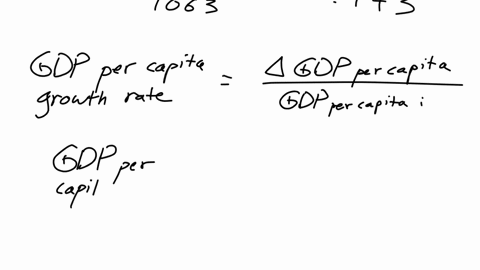 1063 .143
GDP per capita growth rate = Δ GDP per capita / GDP per capita i
GDP per
capil